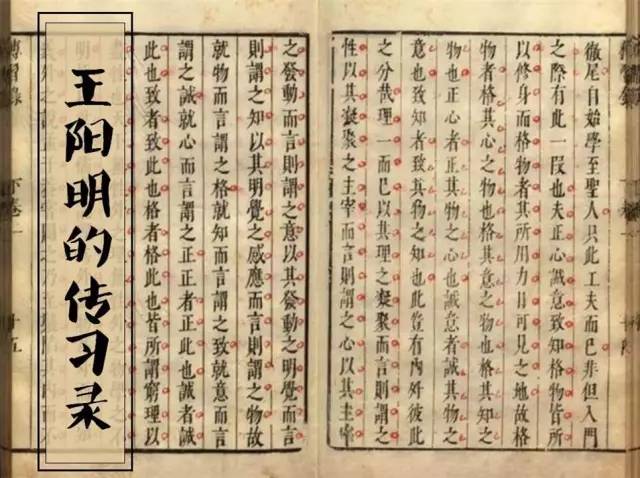 徹尾自始學至聖人只此工夫而已非但入門
之際有此一段也夫正心誠意致知格物皆所
以修身而格物者其所用力日可見之地故格
物者格其心之物也格其意之物也格其知之
物也正心者正其物之心也誠意者誠其物之
意也致知者致其物之知也此豈有內外彼此
之分哉理一而已以其理之凝聚而言則謂之
性以其凝聚之主宰而言則謂之心以其主宰
之發動而言則謂之意以其發動之明覺而言
則謂之知以其明覺之感應而言則謂之物故
就物而言謂之格就知而言謂之致就意而言
謂之誠就心而言謂之正正者正此也誠者誠
此也致者致此也格者格此也皆所謂窮理以
王阳明的传习录
傳習錄